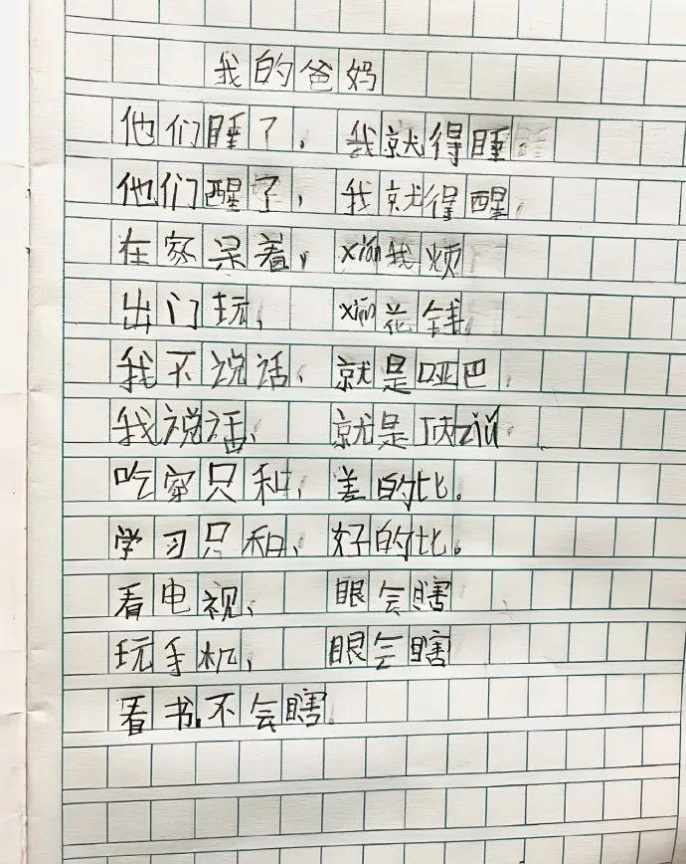 我的爸妈
他们睡了,我就得睡。
他们醒了,我就得醒。
在家呆着,xián我烦
出门玩,xián花钱。
我不说话,就是哑巴。
我说话,就是顶zuǐ。
吃穿只和,差的比。
学习只和,好的比。
看电视,眼会瞎
玩手机,眼会瞎
看书不会瞎。